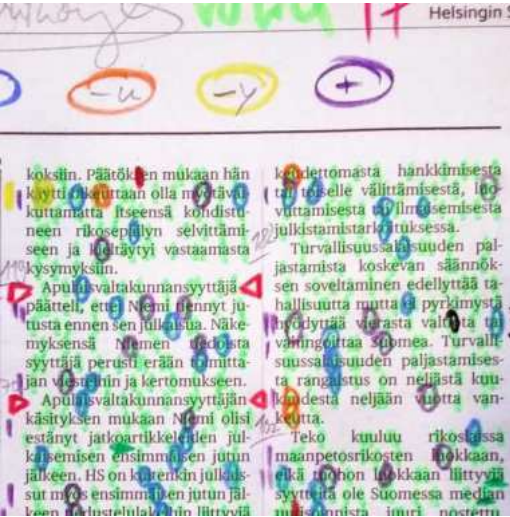 17
Helsingin S
-u
-y
+
koksiin. Päätöksen mukaan hän
käytti oikeuttaan olla myötävai-
kuttamatta itseensä kohdistu-
neen rikosepäilyn selvittämi-
seen ja kieltäytyi vastaamasta
kysymyksiin.
Apulaisvaltakunnansyyttäjä
päätteli, ettei Niemi tiennyt ju-
tusta ennen sen julkaisua. Näke-
myksensä Niemen tiedoista
syyttäjä perusti erään toimitta-
jan viesteihin ja kertomukseen.
Apulaisvaltakunnansyyttäjän
käsityksen mukaan Niemi olisi
estänyt jatkoartikkeleiden jul-
kaisemisen ensimmäisen jutun
jälkeen. HS on kuitenkin julkais-
sut myös ensimmäisen jutun jäl-
keen
liittyviä
keudettomasta hankkimisesta
tai toiselle välittämisestä, luo-
vuttamisesta tai ilmaisemisesta
julkistamistarkoituksessa.
Turvallisuussalaisuuden pal-
jastamista koskevan säännök-
sen soveltaminen edellyttää ta-
hallisuutta mutta ei pyrkimystä
hyödyttää vierasta valtiota tai
vahingoittaa Suomea. Turvalli-
suussalaisuuden paljastamises-
ta rangaistus on neljästä kuu-
kaudesta neljään vuotta van-
keutta.
Teko kuuluu rikoslaissa
maanpetosrikosten luokkaan,
eikä tuohon luokkaan liittyviä
syytteitä ole Suomessa median
juuri nostettu